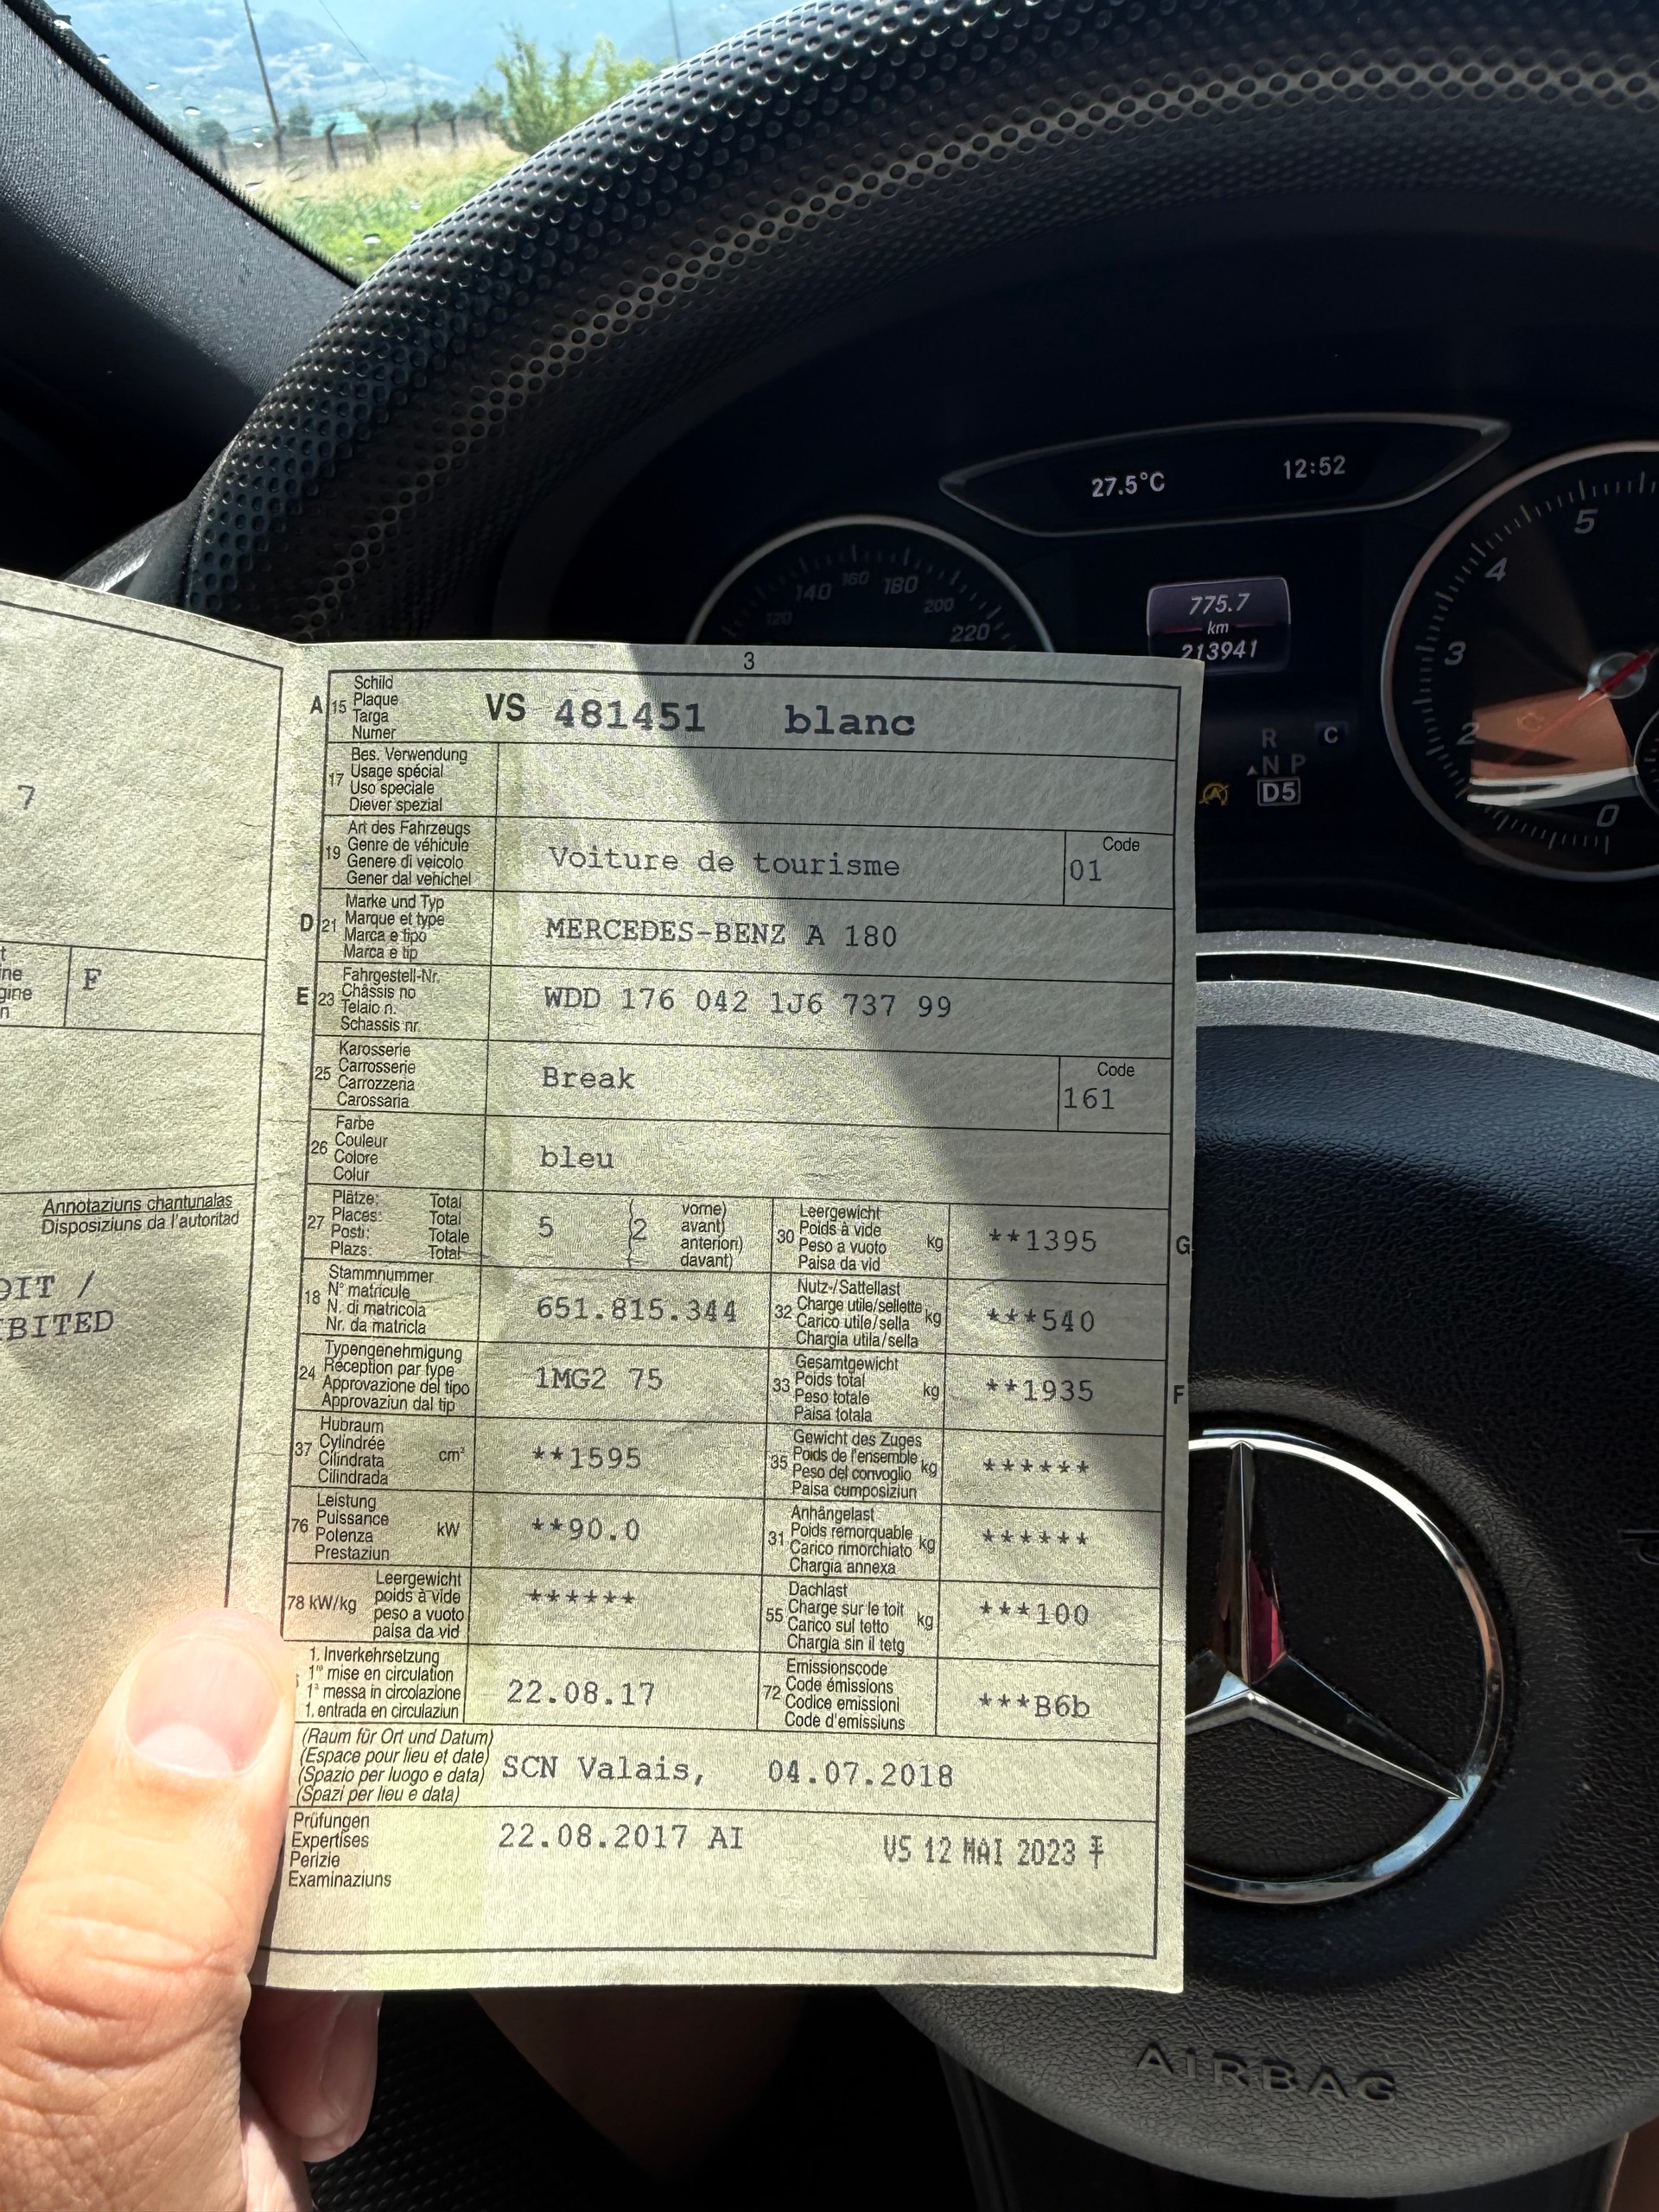 27.5°C 12:52
140 160 180
120 200
220
775.7
km
213941
5
4
3
2
0
R C
N P
D5
7
F
Annotaziuns chantunalas
Disposiziuns da l'autoritad
3
A 15 Schild
Plaque
Targa
Numer
VS 481451 blanc
17 Bes. Verwendung
Usage spécial
Uso speciale
Diever spezial
19 Art des Fahrzeugs
Genre de véhicule
Genere di veicolo
Gener dal vehichel
Voiture de tourisme
Code
01
D 21 Marke und Typ
Marque et type
Marca e tipo
Marca e tip
MERCEDES-BENZ A 180
E 23 Fahrgestell-Nr.
Châssis no
Telaio n.
Schassis nr.
WDD 176 042 1J6 737 99
25 Karosserie
Carrosserie
Carrozzeria
Carossaria
Break
Code
161
26 Farbe
Couleur
Colore
Colur
bleu
27 Plätze: Total
Places: Total
Posti: Totale
Plazs: Total
5 (2 vorne)
avant)
anteriori)
davant)
30 Leergewicht
Poids à vide
Peso a vuoto
Paisa da vid
kg **1395 G
18 Stammnummer
N° matricule
N. di matricola
Nr. da matricla
651.815.344
32 Nutz-/Sattellast
Charge utile/sellette
Carico utile/sella
Chargia utila/sella
kg ***540
24 Typengenehmigung
Réception par type
Approvazione del tipo
Approvaziun dal tip
1MG2 75
33 Gesamtgewicht
Poids total
Peso totale
Paisa totala
kg **1935 F
37 Hubraum
Cylindrée
Cilindrata
Cilindrada
cm³ **1595
35 Gewicht des Zuges
Poids de l'ensemble
Peso del convoglio
Paisa cumposiziun
kg ******
76 Leistung
Puissance
Potenza
Prestaziun
kW **90.0
31 Anhängelast
Poids remorquable
Carico rimorchiato
Chargia annexa
kg ******
78 kW/kg Leergewicht
poids à vide
peso a vuoto
paisa da vid
******
55 Dachlast
Charge sur le toit
Carico sul tetto
Chargia sin il tetg
kg ***100
1. Inverkehrsetzung
1re mise en circulation
1a messa in circolazione
1. entrada en circulaziun
22.08.17
72 Emissionscode
Code émissions
Codice emissioni
Code d'emissiuns
***B6b
(Raum für Ort und Datum)
(Espace pour lieu et date)
(Spazio per luogo e data)
(Spazi per lieu e data)
SCN Valais, 04.07.2018
Prüfungen
Expertises
Perizie
Examinaziuns
22.08.2017 AI VS 12 MAI 2023
AIRBAG